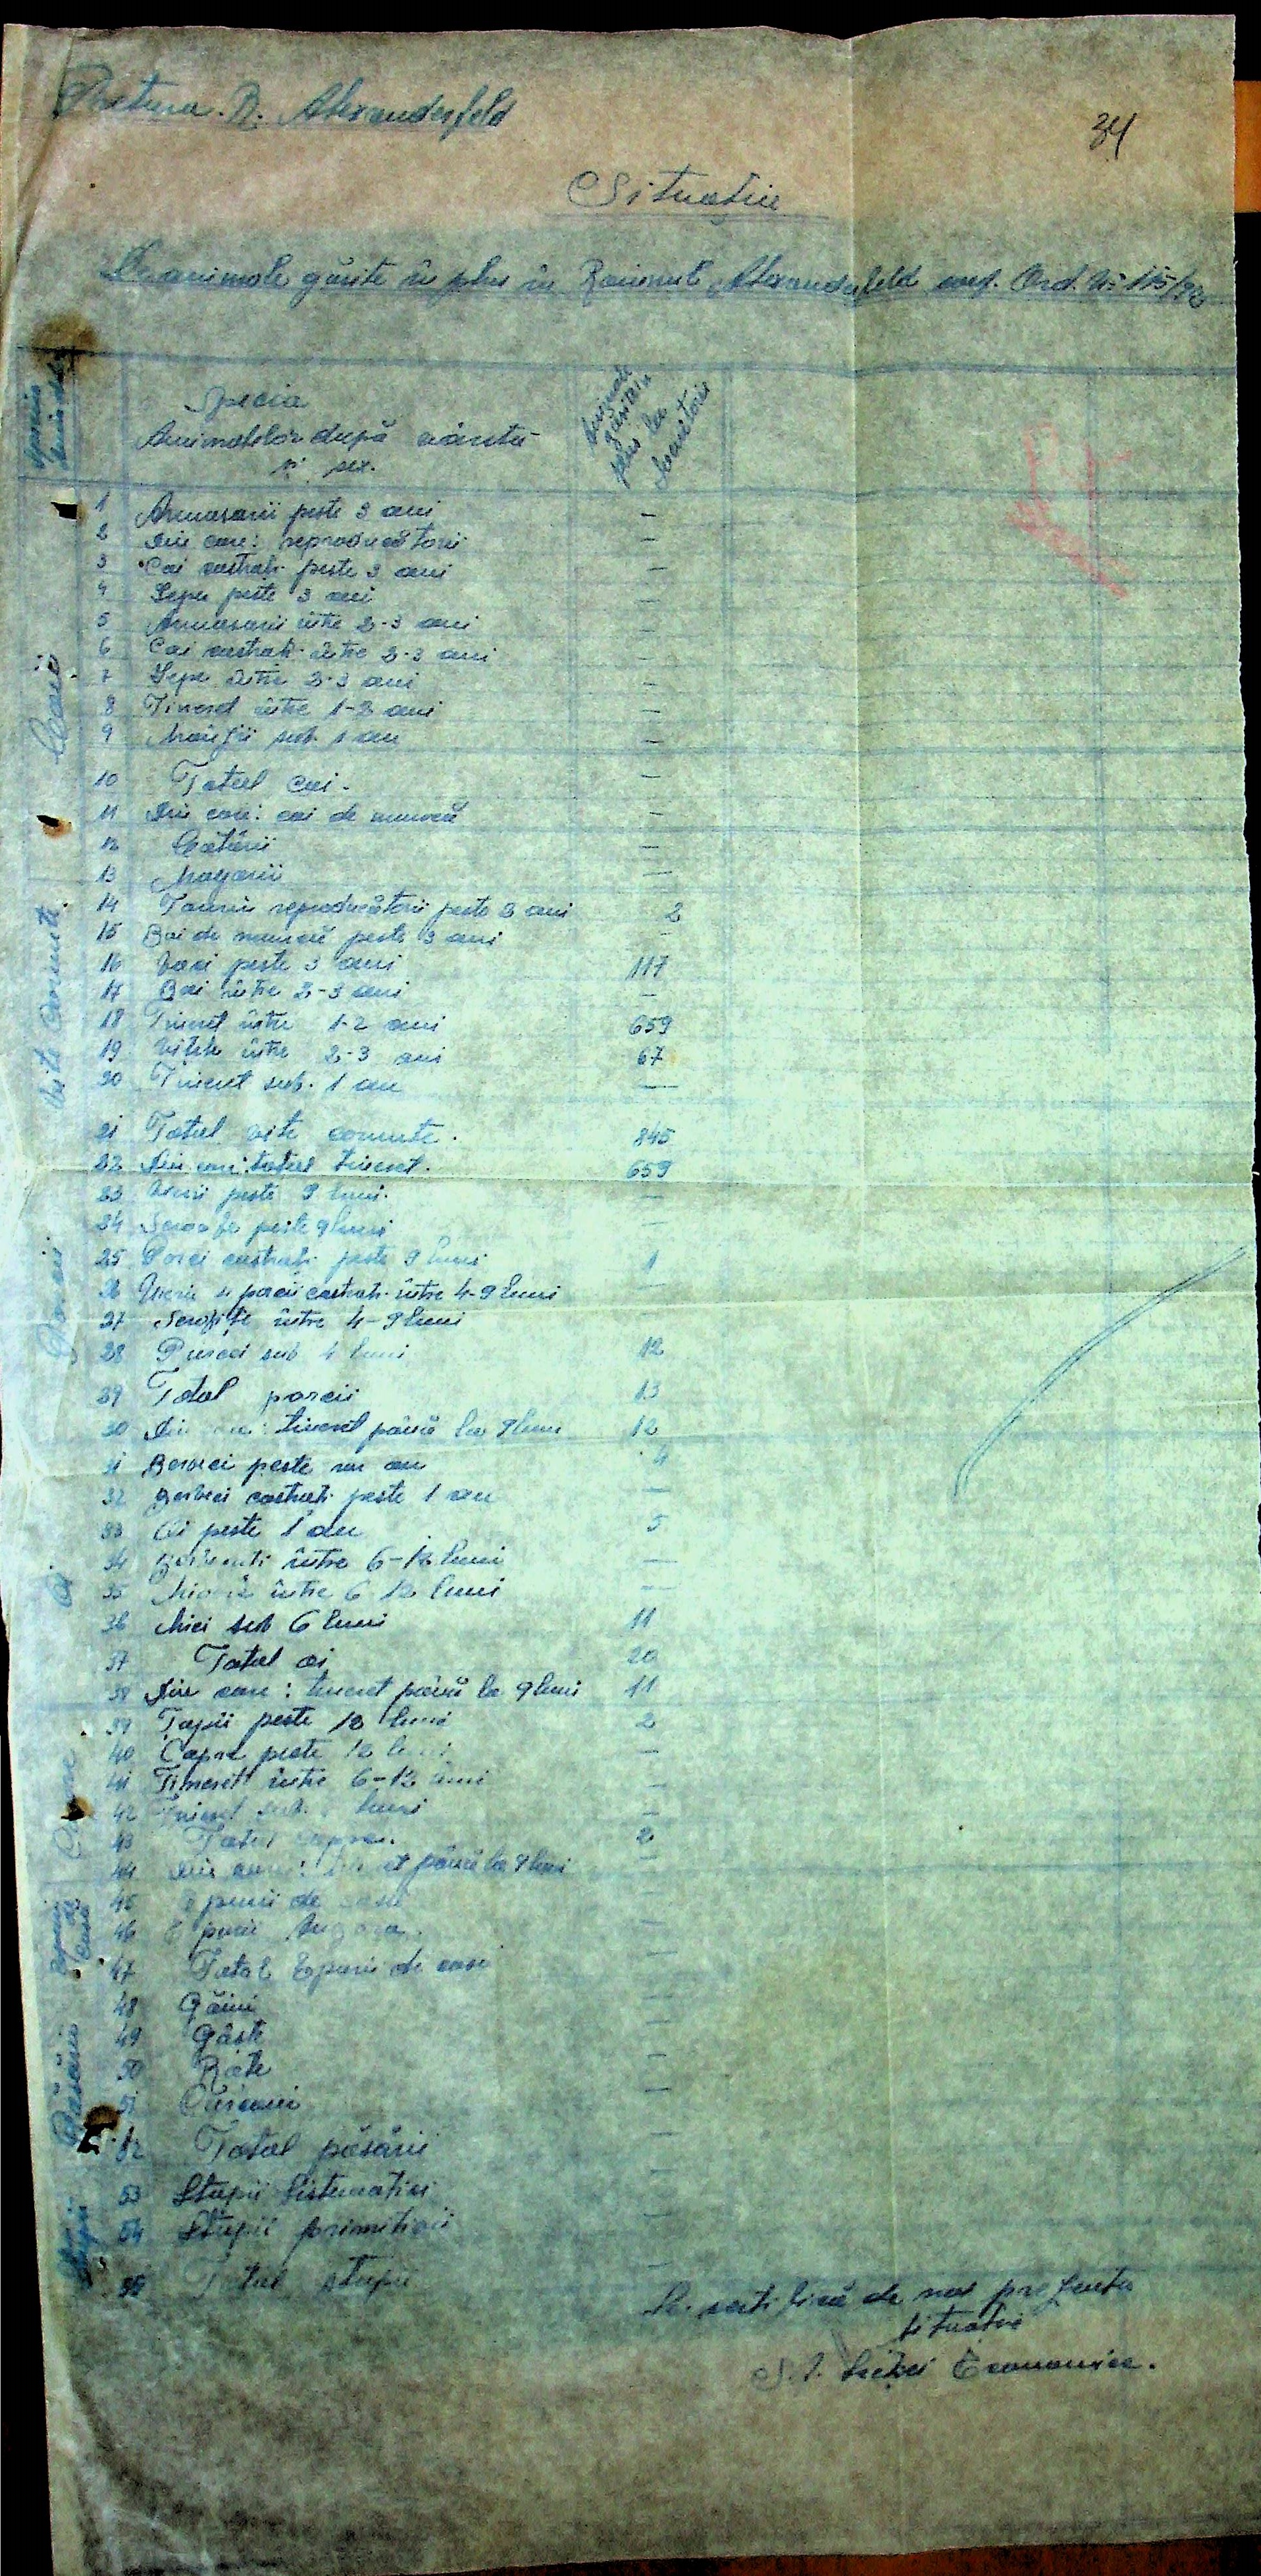 Pretura R. Alexanderfeld
34
Situație
De animale găsite în plus în Raionul Alexanderfeld conf. Ord. No 115/
Specia
Animalelor după vârstă
și sex.
Animale găsite în plus la locuitori
Caii
1 Armasarii peste 3 ani —
2 Din care: reproducătorii —
3 Cai castrați peste 3 ani —
4 Iepe peste 3 ani —
5 Armasarii între 2-3 ani —
6 Cai castrați între 2-3 ani —
7 Iepe între 2-3 ani —
8 Tineret între 1-2 ani —
9 Mânjii sub 1 an —
10 Total cai. —
11 Din care: cai de muncă —
12 Catârii —
13 Magarii —
Vite Cornute
14 Taurii reproducătorii peste 2 ani 2
15 Boi de muncă peste 3 ani —
16 Vaci peste 3 ani 117
17 Boi între 2-3 ani —
18 Tineret între 1-2 ani 659
19 Vițele între 2-3 ani 67
20 Tineret sub 1 an —
21 Total vite cornute. 845
22 Din care: total tineret. 659
Porcii
23 Vierii peste 9 luni. —
24 Scroafe peste 9 luni —
25 Porci castrați peste 9 luni 1
26 Vierii și porcii castrați între 4-9 luni —
27 Scrofițe între 4-9 luni
28 Purcei sub 4 luni 12
29 Total porcii 13
30 Din care: tineret până la 9 luni 12
Oi
31 Berbeci peste un an 4
32 Berbeci castrați peste 1 an —
33 Oi peste 1 an 5
34 între 6-12 luni —
35 între 6 12 luni —
36 Miei sub 6 luni 11
37 Total oi 20
38 Din care: tineret până la 9 luni 11
Capre
39 Țapii peste 12 luni 2
40 Capre peste 12 luni —
41 Tineret între 6-12 luni —
42 Tineret sub luni —
43 Total capre. 2
44 Din care: tineret până la 9 luni —
Epuri de casă
45 Epurii de casă —
46 Epurii Angora. —
47 Total Epurii de casă —
Păsările
48 Găini —
49 Gâște —
50 Rațe —
51 Curcani —
52 Total păsării —
Stupii
53 Stupii Sistematici —
54 Stupii primitivii —
55 Total stupii —
Se certifică de noi prezenta
situație
Secției Economice.